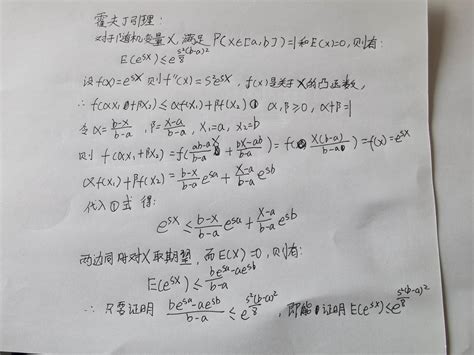 霍夫丁引理:
对于随机变量X,满足 P(X∈[a,b])=1和E(X)=0,则有:
E(e^{sX}) ≤ e^{\frac{s²(b-a)²}{8}}
设f(x)=e^{sx},则f''(x)=s²e^{sx}, f(x)是关于x的凸函数,
∴ f(αx₁+βx₂) ≤ αf(x₁)+βf(x₂) ① α,β≥0, α+β=1
令 α=\frac{b-x}{b-a}, β=\frac{x-a}{b-a}, x₁=a, x₂=b
则 f(αx₁+βx₂)=f(\frac{ab-ax}{b-a}+\frac{bx-ab}{b-a})=f(\frac{x(b-a)}{b-a})=f(x)=e^{sx}
αf(x₁)+βf(x₂)=\frac{b-x}{b-a}e^{sa}+\frac{x-a}{b-a}e^{sb}
代入①式 得:
e^{sx} ≤ \frac{b-x}{b-a}e^{sa}+\frac{x-a}{b-a}e^{sb}
两边同时对X取期望,而E(X)=0,则有:
E(e^{sX}) ≤ \frac{be^{sa}-ae^{sb}}{b-a}
∴ 只需证明 \frac{be^{sa}-ae^{sb}}{b-a} ≤ e^{\frac{s²(b-a)²}{8}}, 即能证明E(e^{sX}) ≤ e^{\frac{s²(b-a)²}{8}}